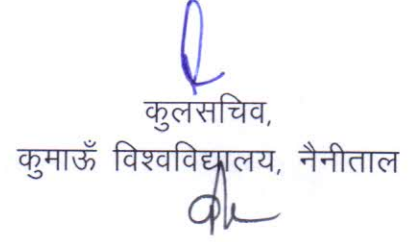 कुलसचिव,
कुमाऊँ विश्वविद्यालय, नैनीताल